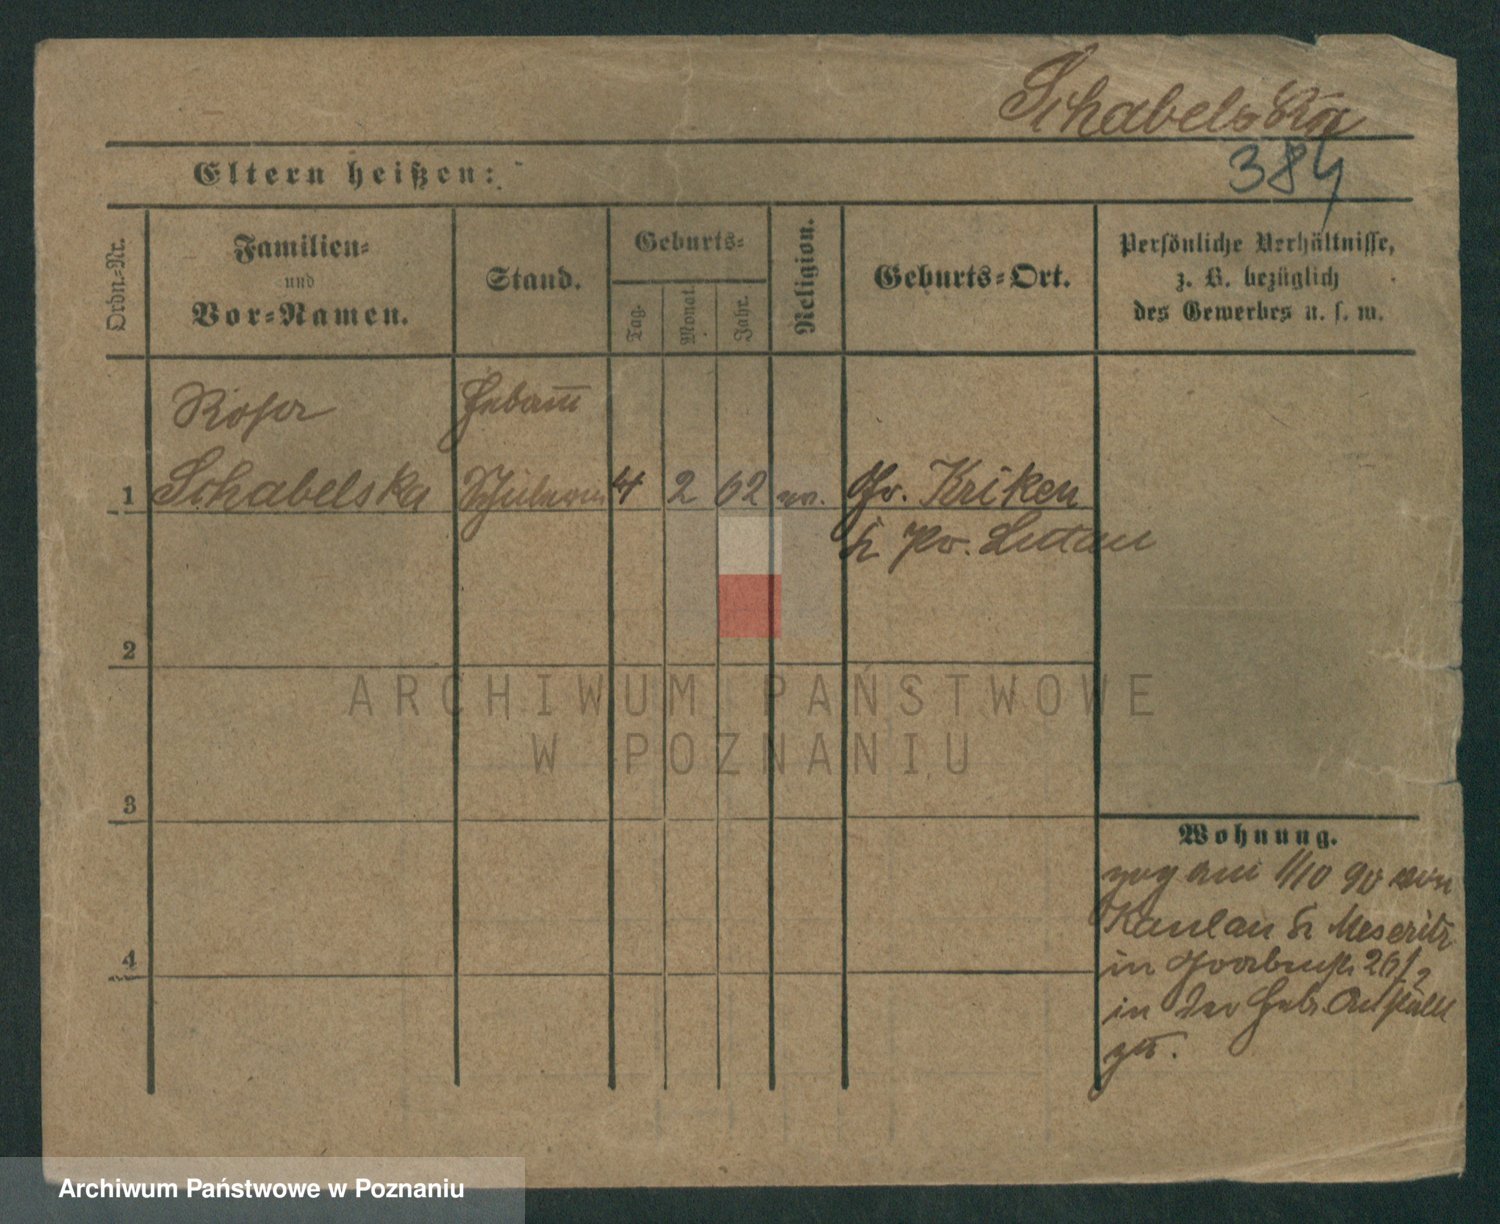 Schabelska
384
Eltern heißen:
Ordn.-Nr.
Familien-
und
Vor-Namen.
Stand.
Geburts-
Tag.
Monat.
Jahr.
Religion.
Geburts-Ort.
Persönliche Verhältnisse,
z. B. bezüglich
des Gewerbes u. s. w.
Rosa Hebam̅
1 Schabelska Schülerin 4 2 62 Gr. Kriken
Lutau
2
ARCHIWUM PAŃSTWOWE
W POZNANIU
3
Wohnung.
zog am 1/10 90 von
Meseritz
in 26/2
4
in der Heb. Anstalt
zu.
Archiwum Państwowe w Poznaniu